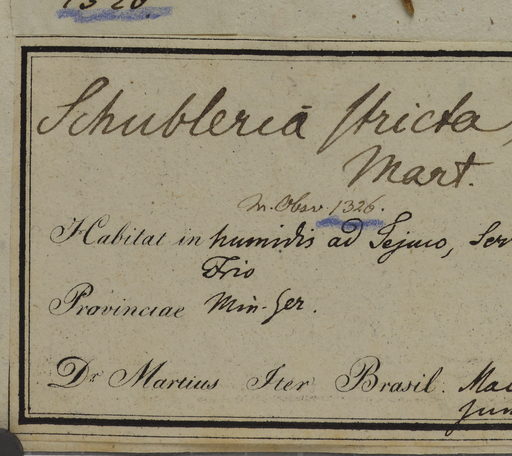 1326
Schubleria stricta,
Mart.
m. Obsv. 1326.
Habitat in humidis ad Tejuco, Ser
Frio
Provinciae Min-Ger.
Dr. Martius Iter Brasil. Mai
Jun